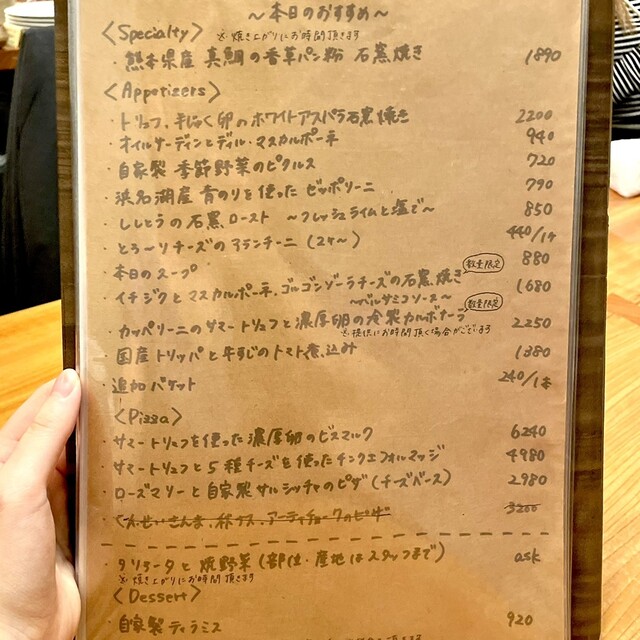 〜本日のおすすめ〜
〈Specialty〉 ※焼き上がりにお時間頂きます
・熊本県産 真鯛の香草パン粉 石窯焼き 1890
〈Appetizers〉
・トリュフ、半じゅく卵のホワイトアスパラ石窯焼き 2200
・オイルサーディンとディル・マスカルポーネ 940
・自家製 季節野菜のピクルス 720
・浜名湖産 青のりを使った ゼッポリーニ 790
・ししとうの石窯ロースト 〜フレッシュライムと塩で〜 850
・とろ〜りチーズのアランチーニ(2ケ〜) 440/1ヶ
・本日のスープ 数量限定 880
・イチジクとマスカルポーネ、ゴルゴンゾーラチーズの石窯焼き 1680
〜バルサミコソース〜 数量限定
・カッパリーニのサマートリュフと濃厚卵の冷製カルボナーラ 2250
※提供にお時間頂く場合がございます
・国産トリッパと牛すじのトマト煮込み 1380
・追加バケット 240/1本
〈Pizza〉
・サマートリュフを使った濃厚卵のビスマルク 6240
・サマートリュフと5種チーズを使ったチンクエフォルマッジ 4980
・ローズマリーと自家製サルシッチャのピザ(チーズベース) 2980
・くんせいさんま、秋ナス、アーティチョークのピザ 3200
・タリアータと焼野菜(部位・産地はスタッフまで) ask
※焼き上がりにお時間頂きます
〈Dessert〉
・自家製ティラミス 920